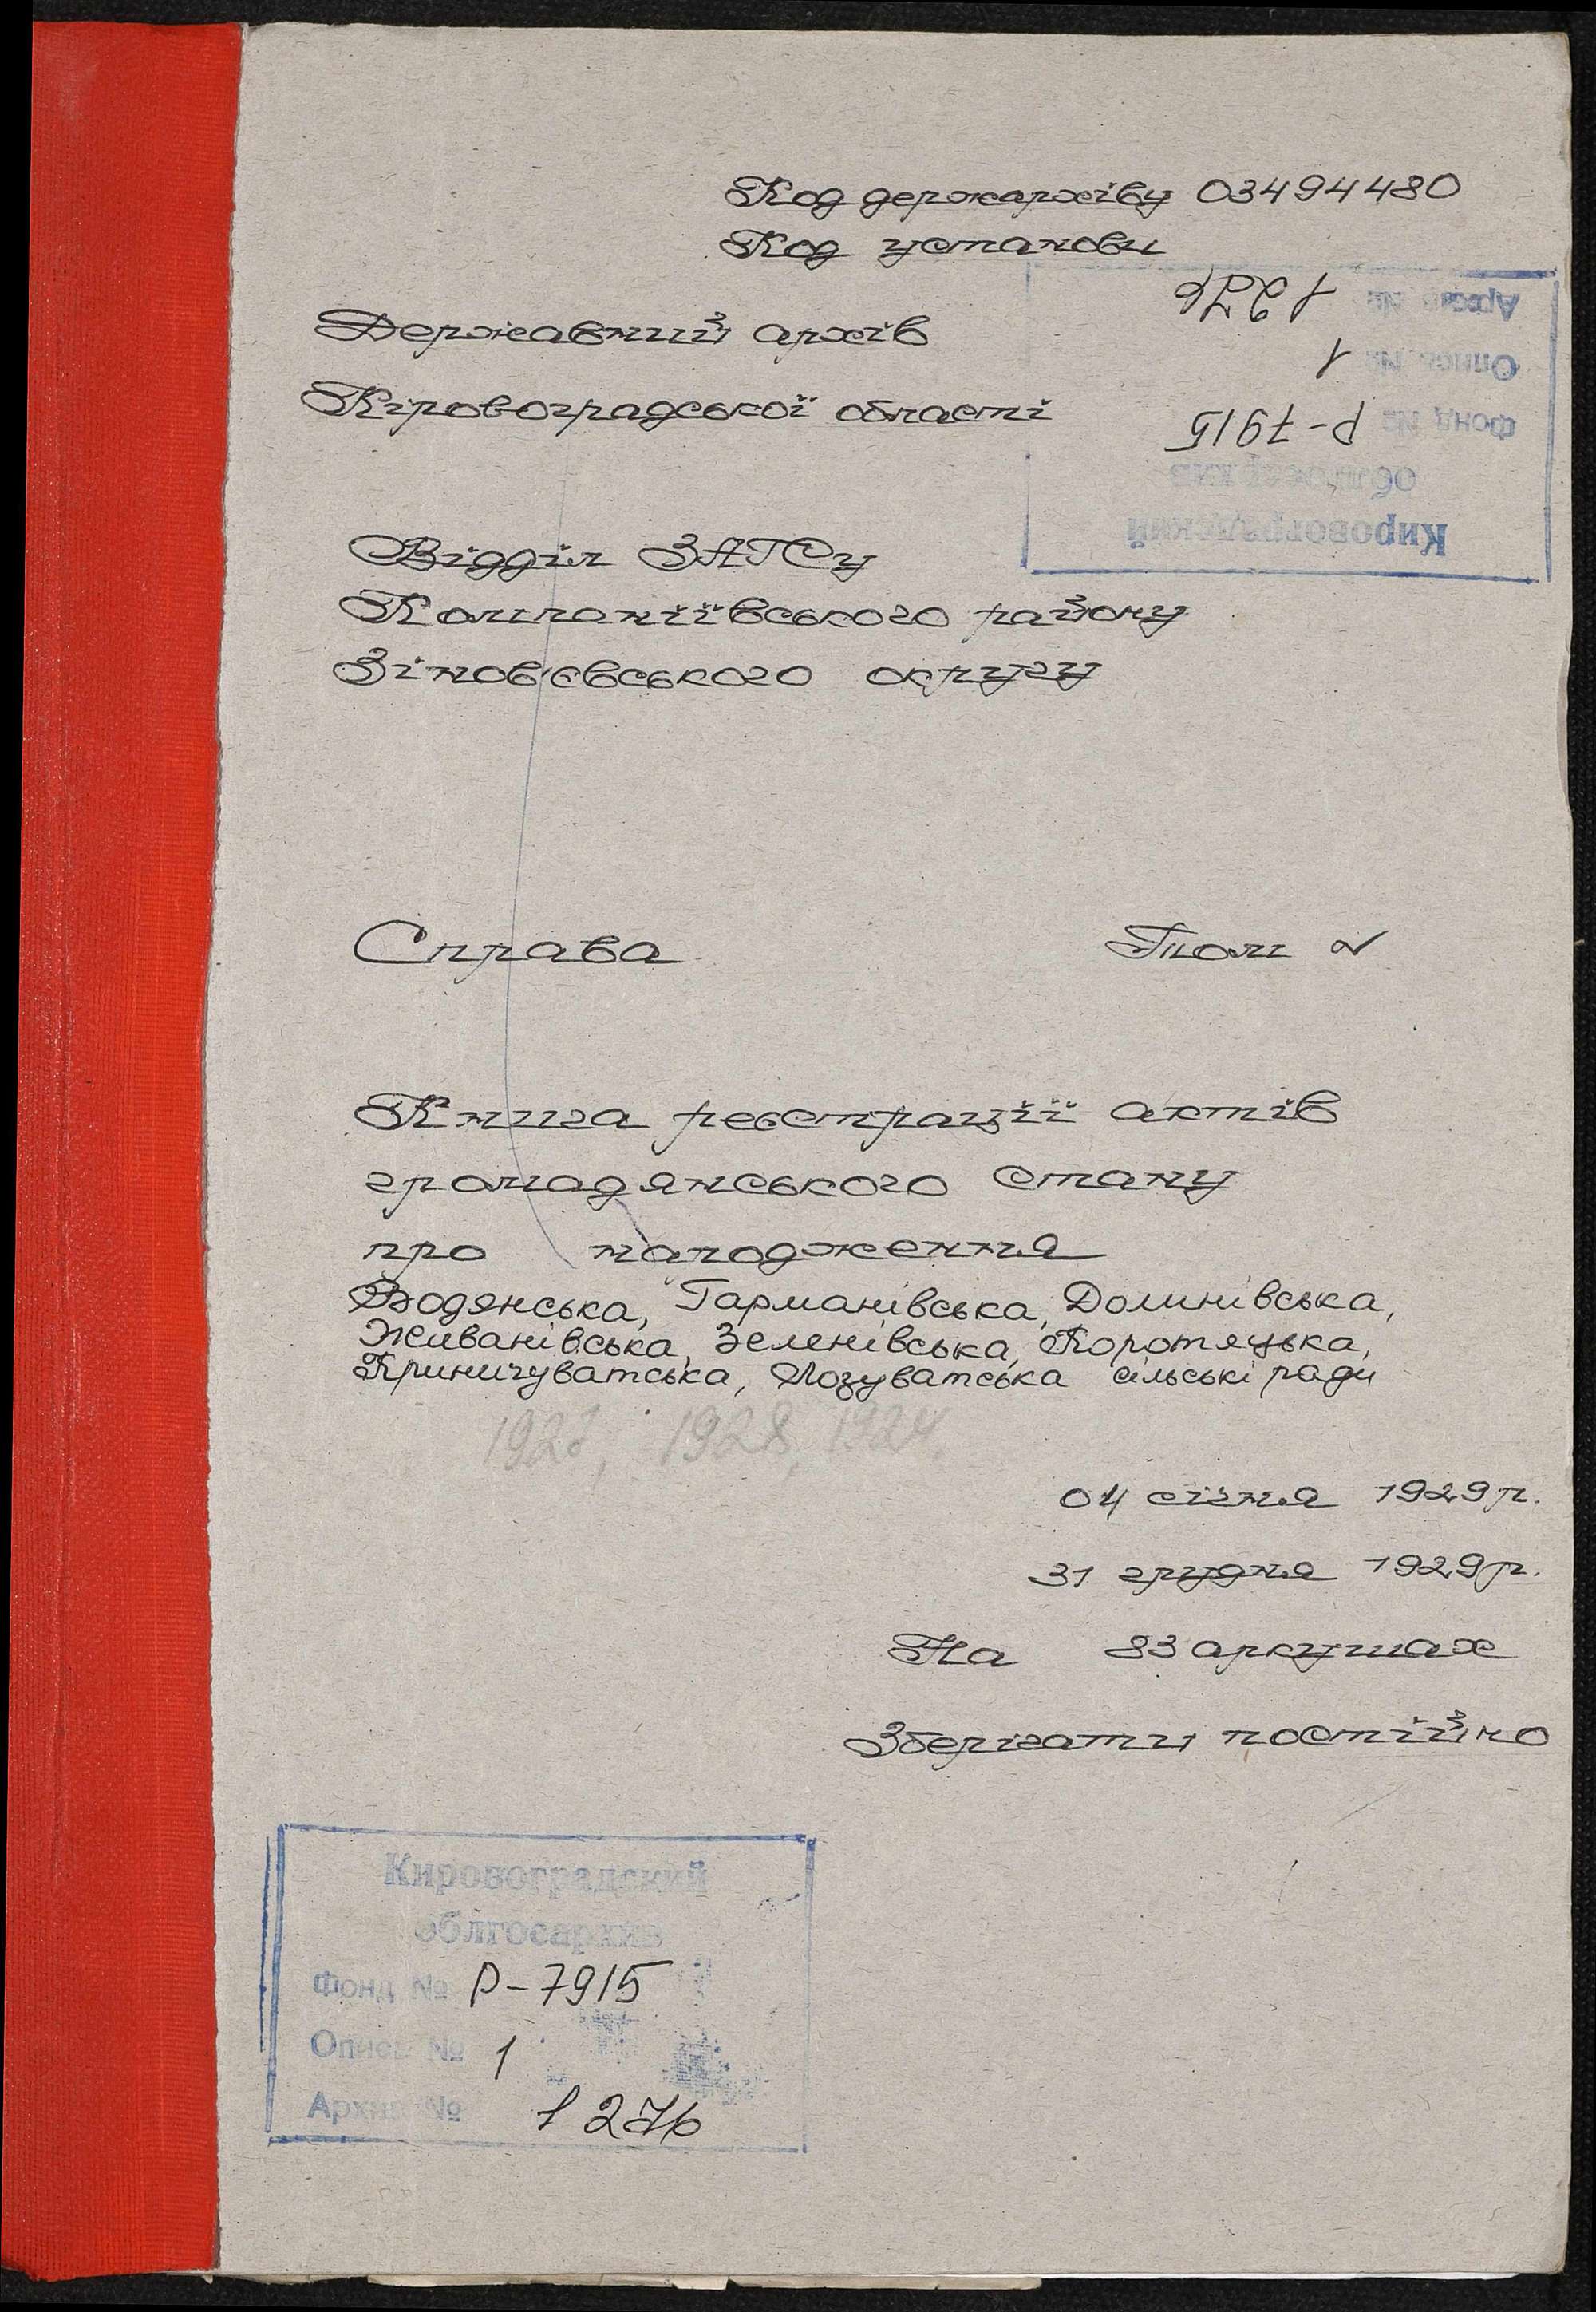 Код держархіву 03494480
Код установи
Державний архів
Кіровоградської області
Архив № 1276
Опись № 1
Фонд № Р-7915
облгосархив
Кировоградский
Відділ ЗАГСу
Компаніївського району
Зінов'євського округу
Справа Том №
Книга реєстрації актів
громадянського стану
про народження
Водянська, Гарманівська, Долинівська,
Живанівська, Зеленівська, Коротяцька,
Криничуватська, Лозуватська сільські ради
1928, 1924
04 січня 1929 р.
31 грудня 1929 р.
На 83 аркушах
Зберігати постійно
Кировоградский
облгосархив
Фонд № Р-7915
Опись № 1
Архив № 1276